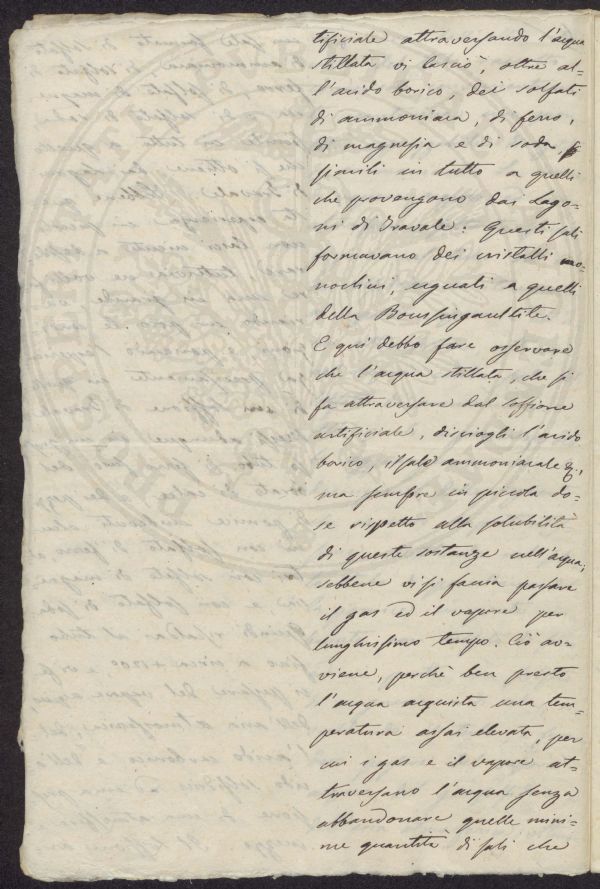 tificiale attraversando l'acqua
stillata vi lasciò, oltre al-
l'acido borico, dei solfati
di ammoniaca, di ferro,
di magnesia e di soda,
simili in tutto a quelli
che provengono dai Lago-
ni di Travale: Questi sali
formavano dei cristalli mo-
noclini, uguali a quelli
della Boussingaultite.
E qui debbo fare osservare
che l'acqua stillata, che si
fa attraversare dal soffione
artificiale, discioglie l'acido
borico, il sale ammoniacale &.,
ma sempre in piccola do-
se rispetto alla solubilità
di queste sostanze nell'acqua;
sebbene vi si faccia passare
il gas ed il vapore per
lunghissimo tempo. Ciò av-
viene, perchè ben presto
l'acqua acquista una tem-
peratura assai elevata, per
cui i gas e il vapore at-
traversano l'acqua senza
abbandonare quelle mini-
me quantità di sali che